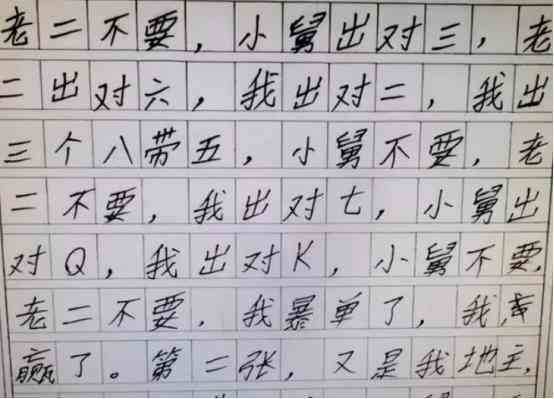 老二不要，小舅出对三，老
二出对六，我出对二，我出
三个八带五，小舅不要，老
二不要，我出对七，小舅出
对Q，我出对K，小舅不要，
老二不要．我暴单了，我
赢了。第二张，又是我地主，